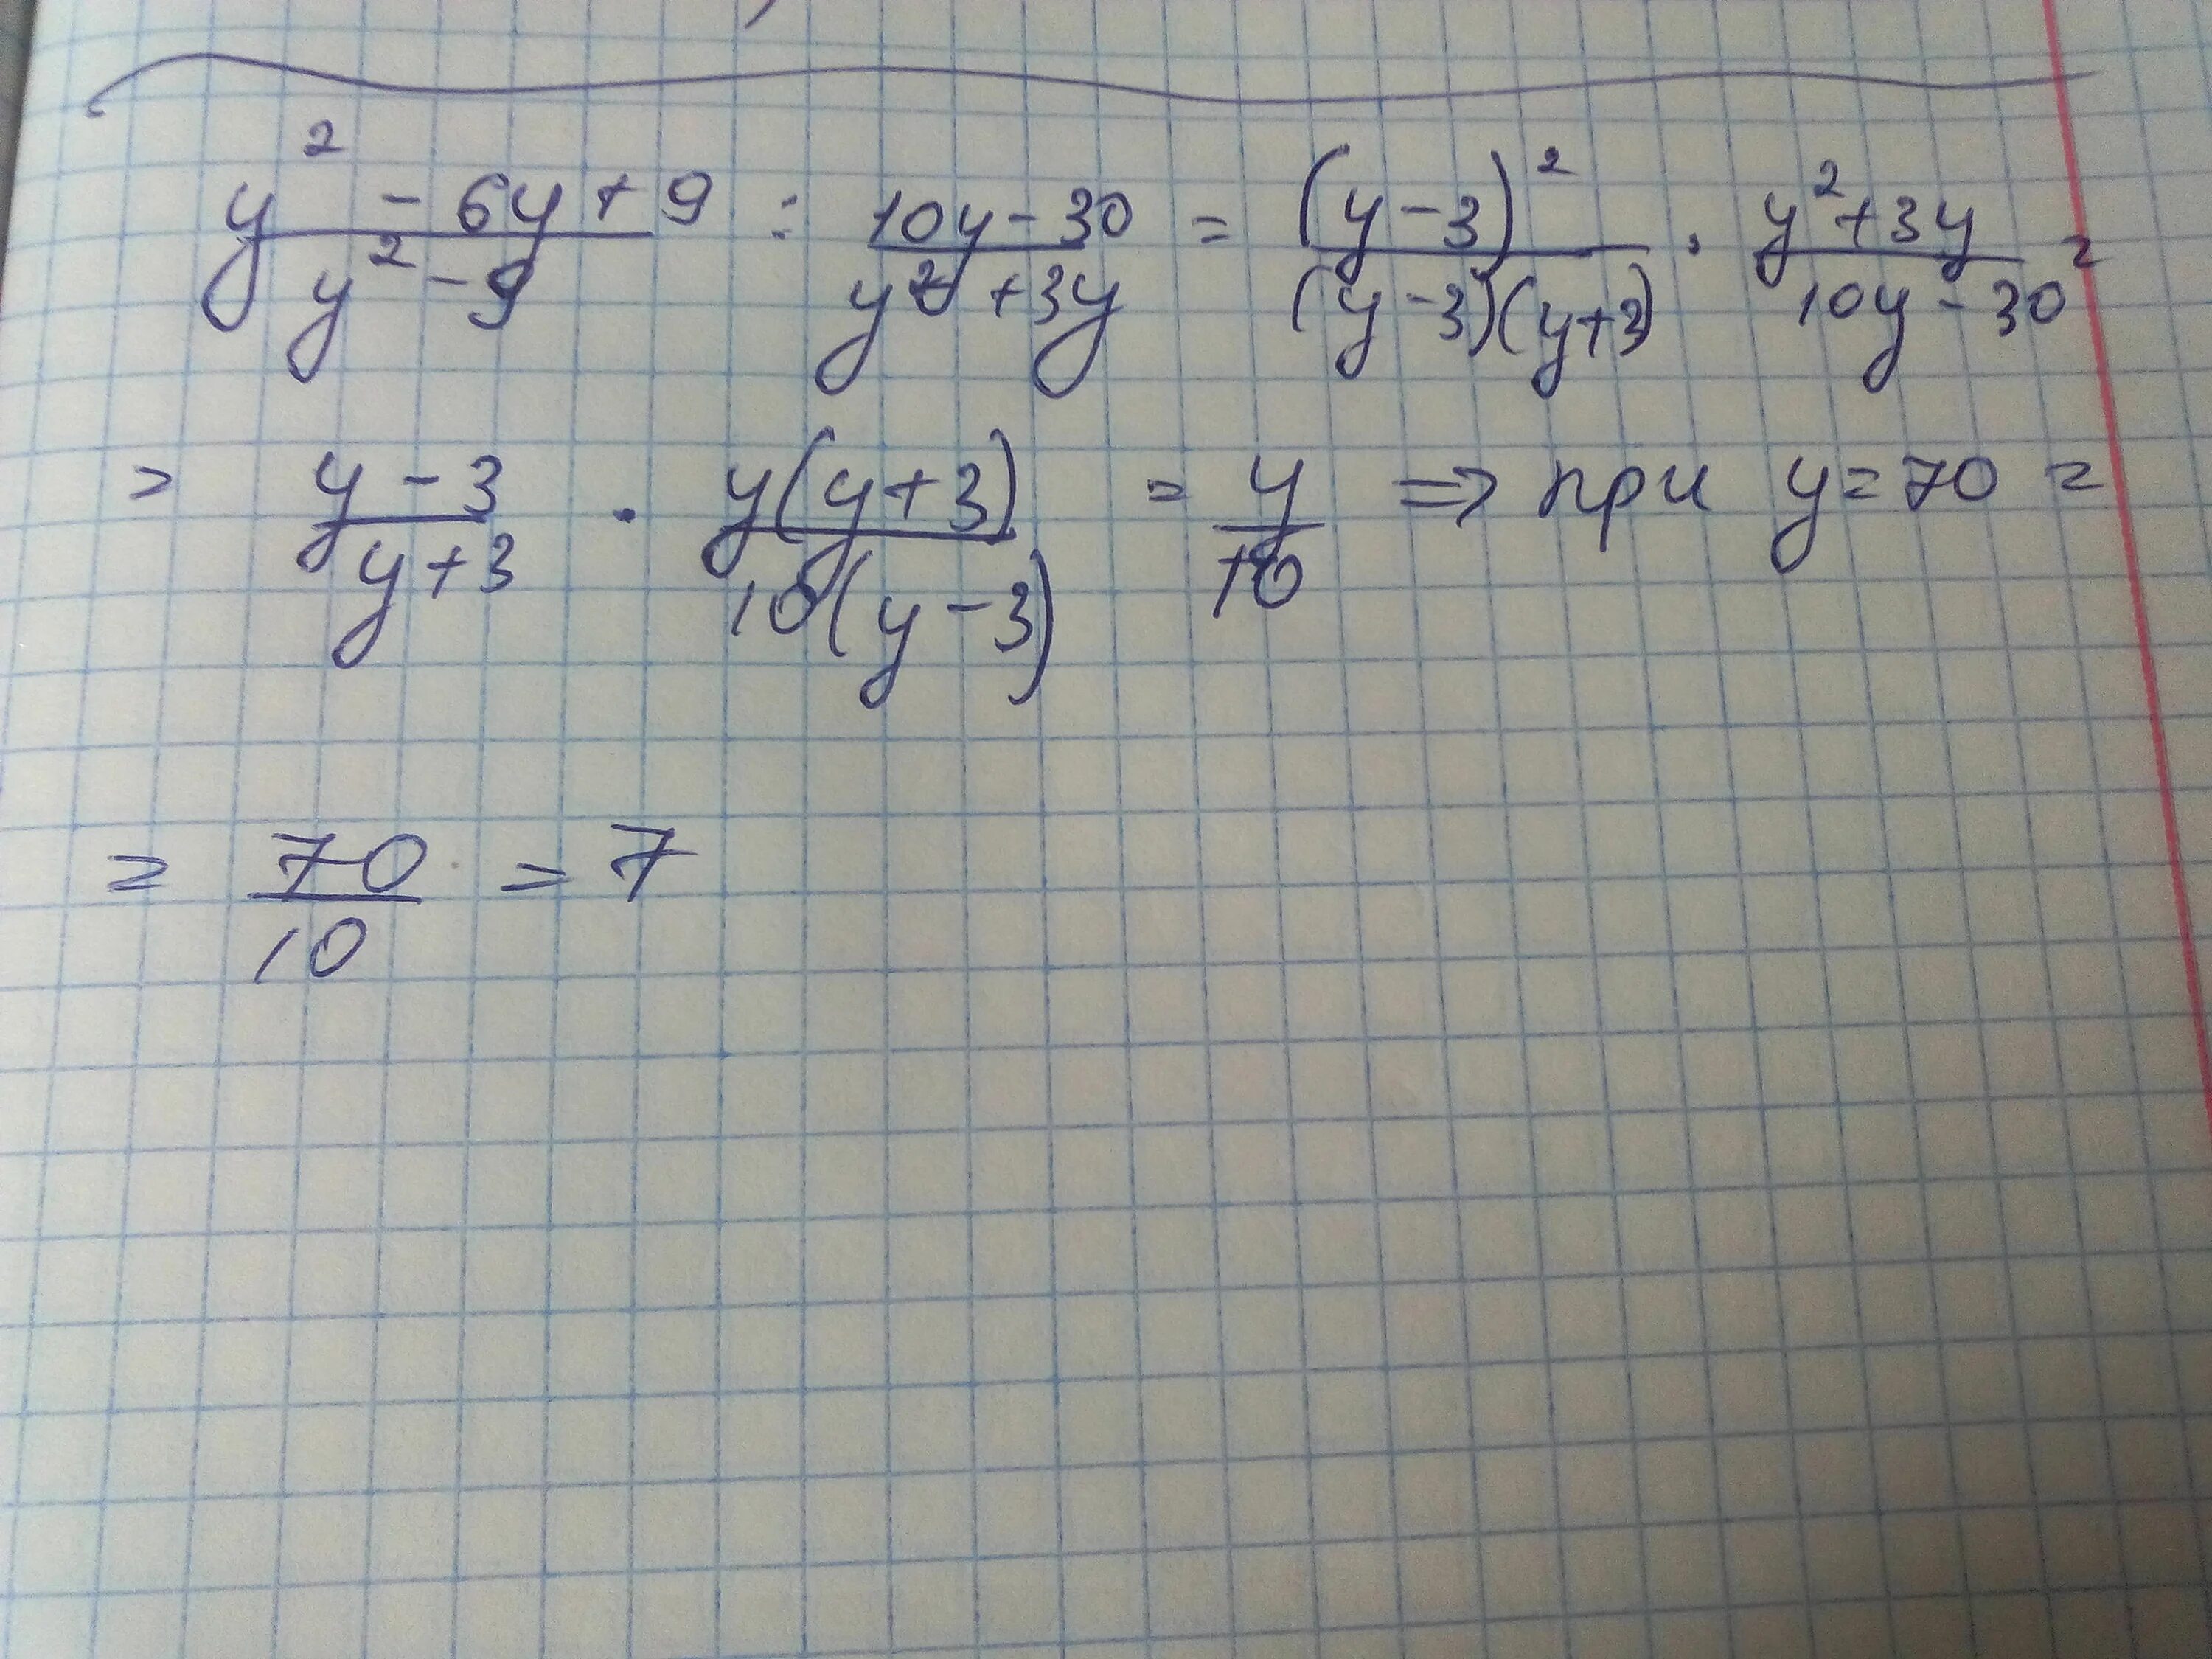 (y² - 6y + 9)/(y² - 9) : (10y - 30)/(y² + 3y) = (y - 3)²/((y - 3)(y + 3)) · (y² + 3y)/(10y - 30) =
= (y - 3)/(y + 3) · y(y + 3)/(10(y - 3)) = y/10 ⇒ при y = 70 =
= 70/10 = 7